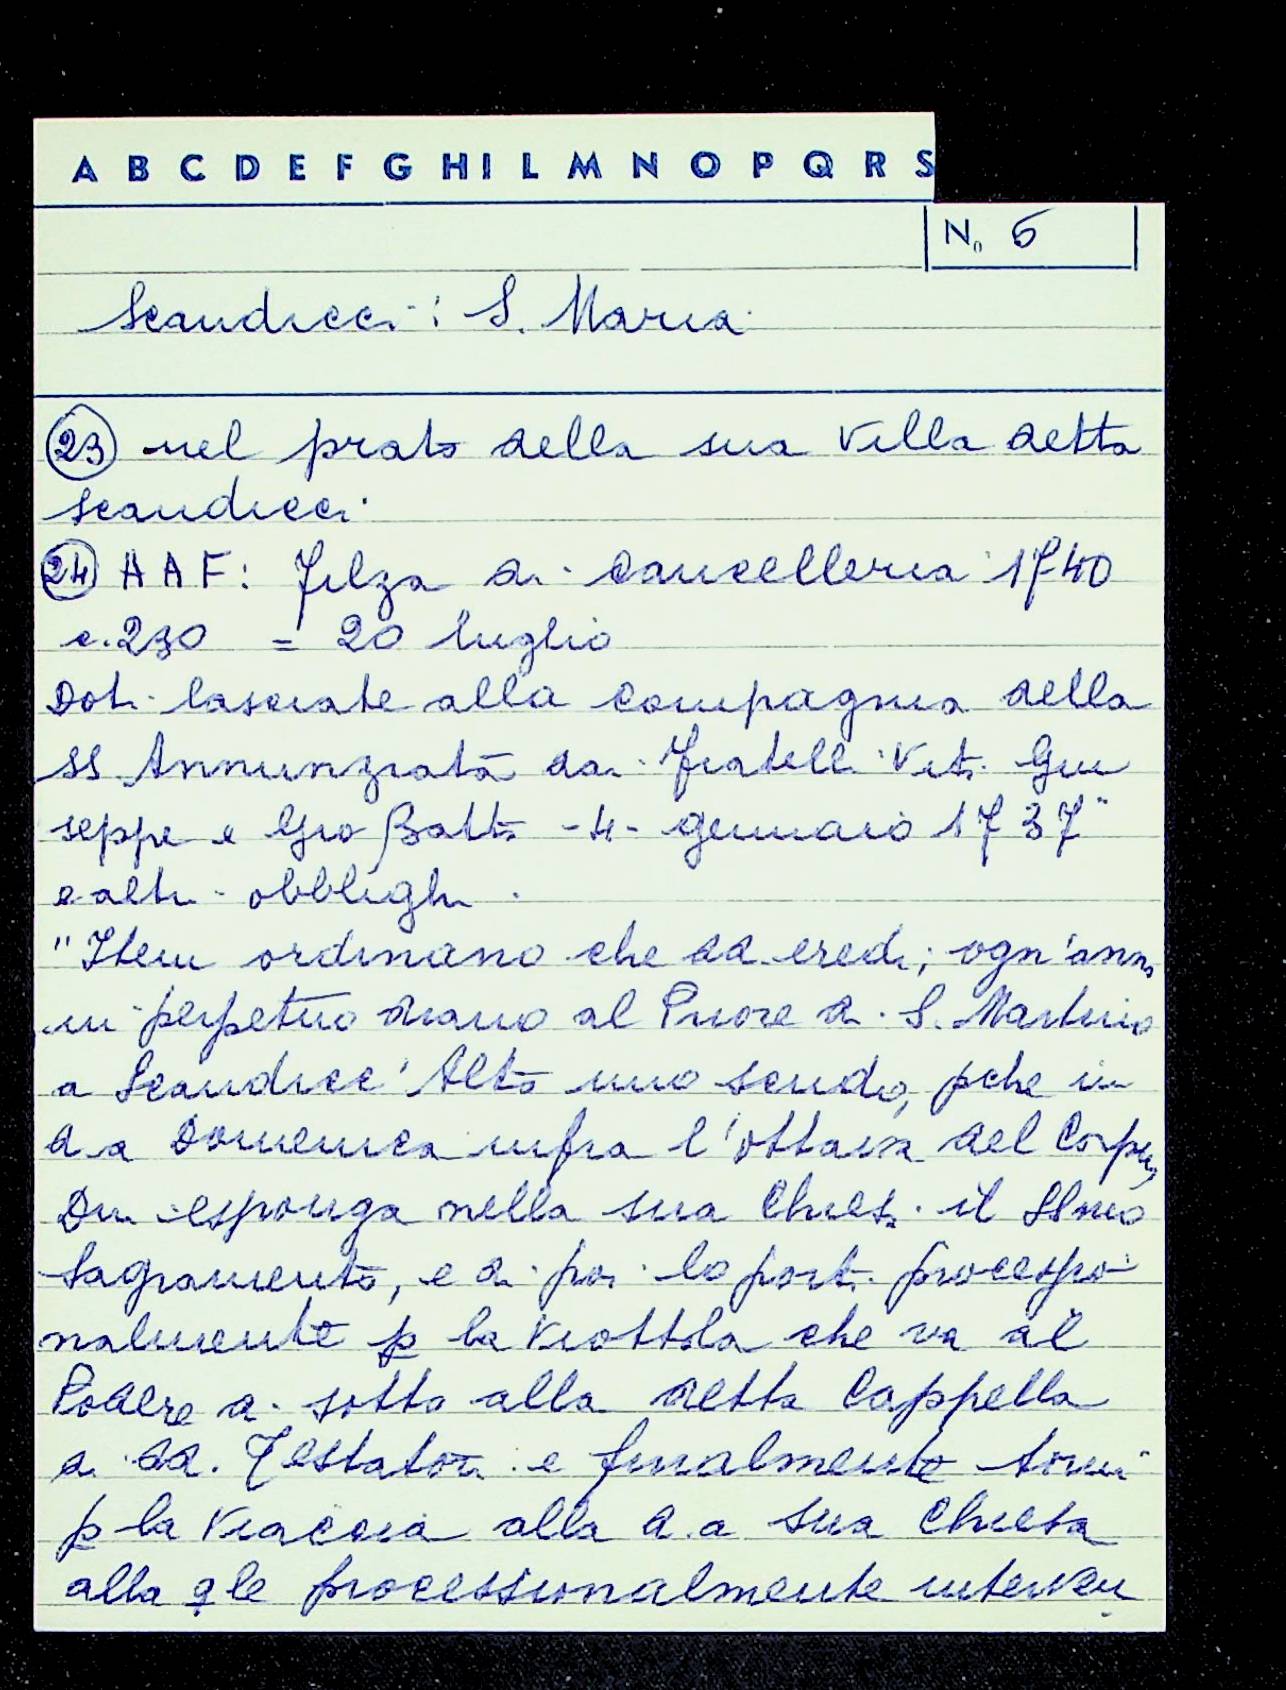 A B C D E F G H I L M N O P Q R S
N. 6
Scandicci: S. Maria
23 nel prato della sua Villa detta
Scandicci.
24 A A F: Filza di Cancelleria 1740
c. 230 = 20 luglio
Doti lasciate alla Compagnia della
SS Annunziata dai fratelli Viti Giu
seppe e Gio Batta - 4 - gennaio 1737
e altri obblighi.
"Item ordinano che dd. eredi; ogn'anno
in perpetuo diano al Priore di S. Martino
a Scandicc' Alto uno scudo, pche in
d.a Domenica infra l'ottava del Corpus
Dni esponga nella sua Chiesa il SSmo
Sagramento, e di poi lo porti processio
nalmente p la Viottola che va al
Podere di sotto alla detta Cappella
di dd. Testatori e finalmente torni
p la Viaccia alla d.a sua Chiesa
alla qle processionalmente interven